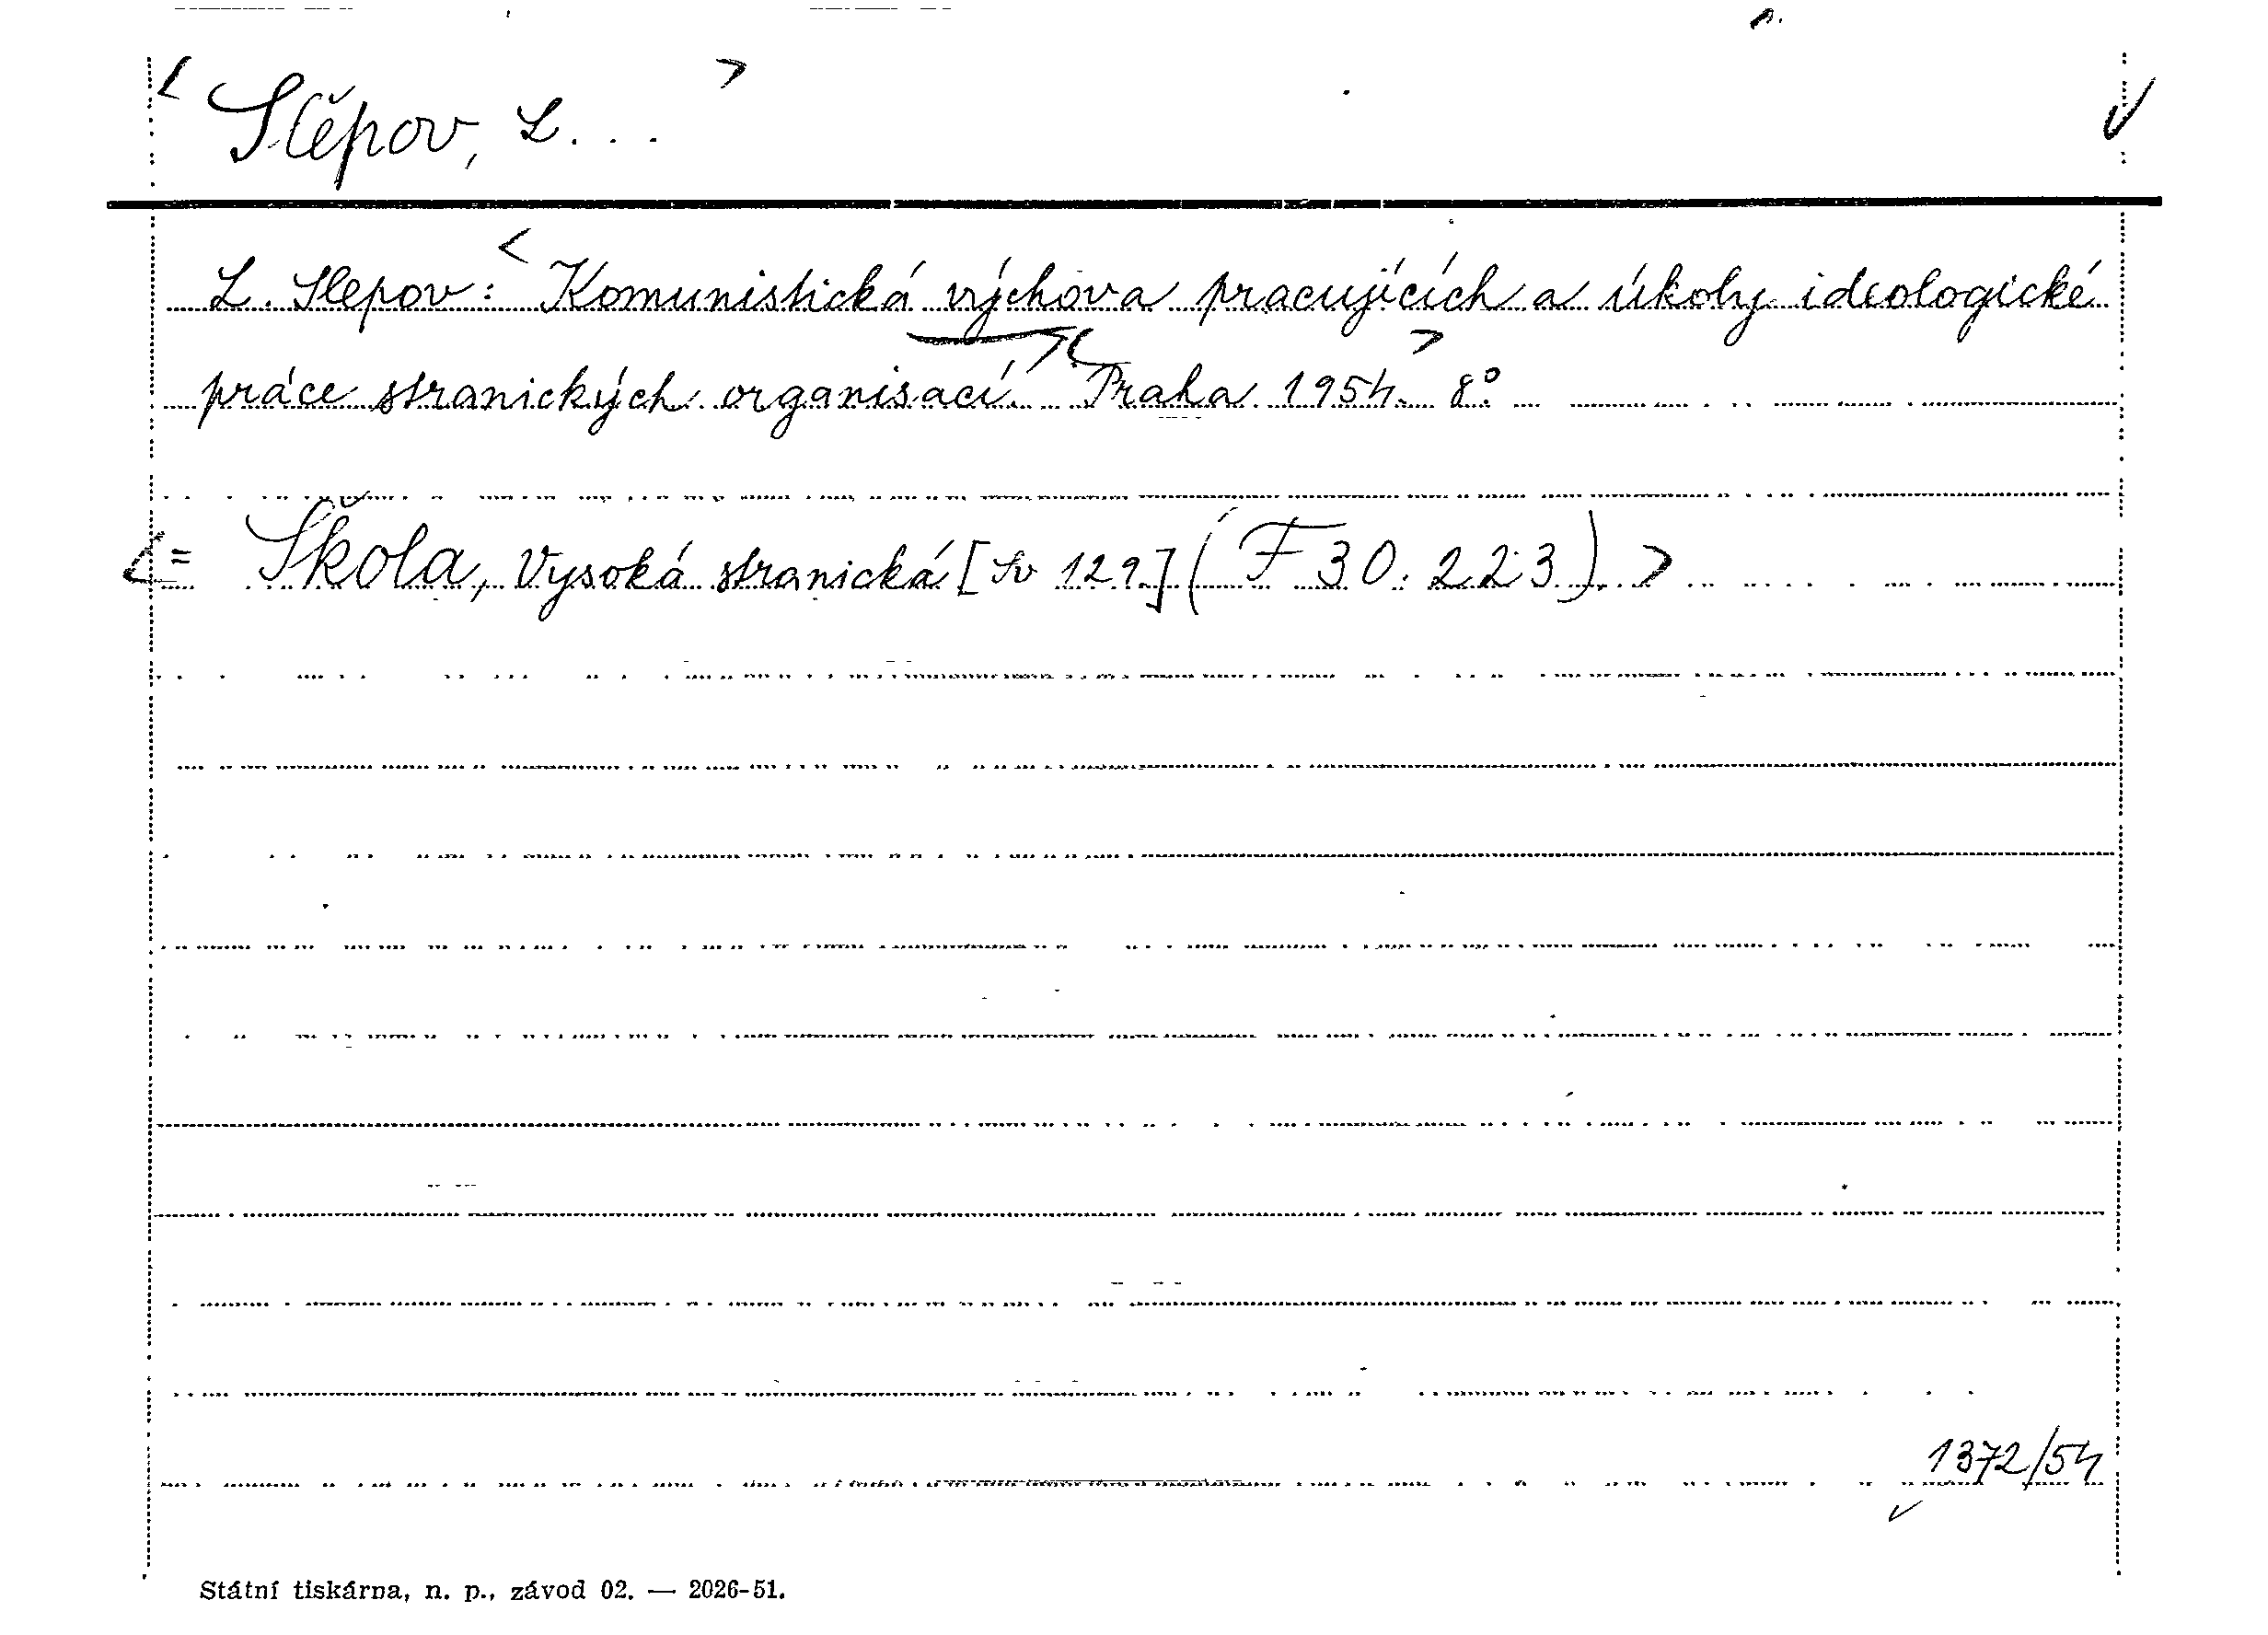 < Slěpov, L... >
L. Slepov: < Komunistická výchova pracujících a úkoly ideologické
práce stranických organisací. Praha 1954. > 8°
<= Škola, Vysoká stranická [Sv 129.] (F 30.223). >
1372/54
Státní tiskárna, n. p., závod 02. — 2026-51.